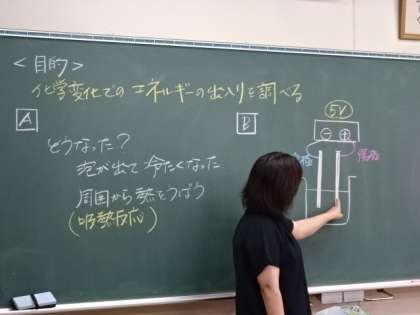 <目的>
化学変化でのエネルギーの出入りを調べる
A
どうなった?
泡が出て冷たくなった
周囲から熱をうばう
(吸熱反応)
B
5V
⊖ ⊕
極
陽極